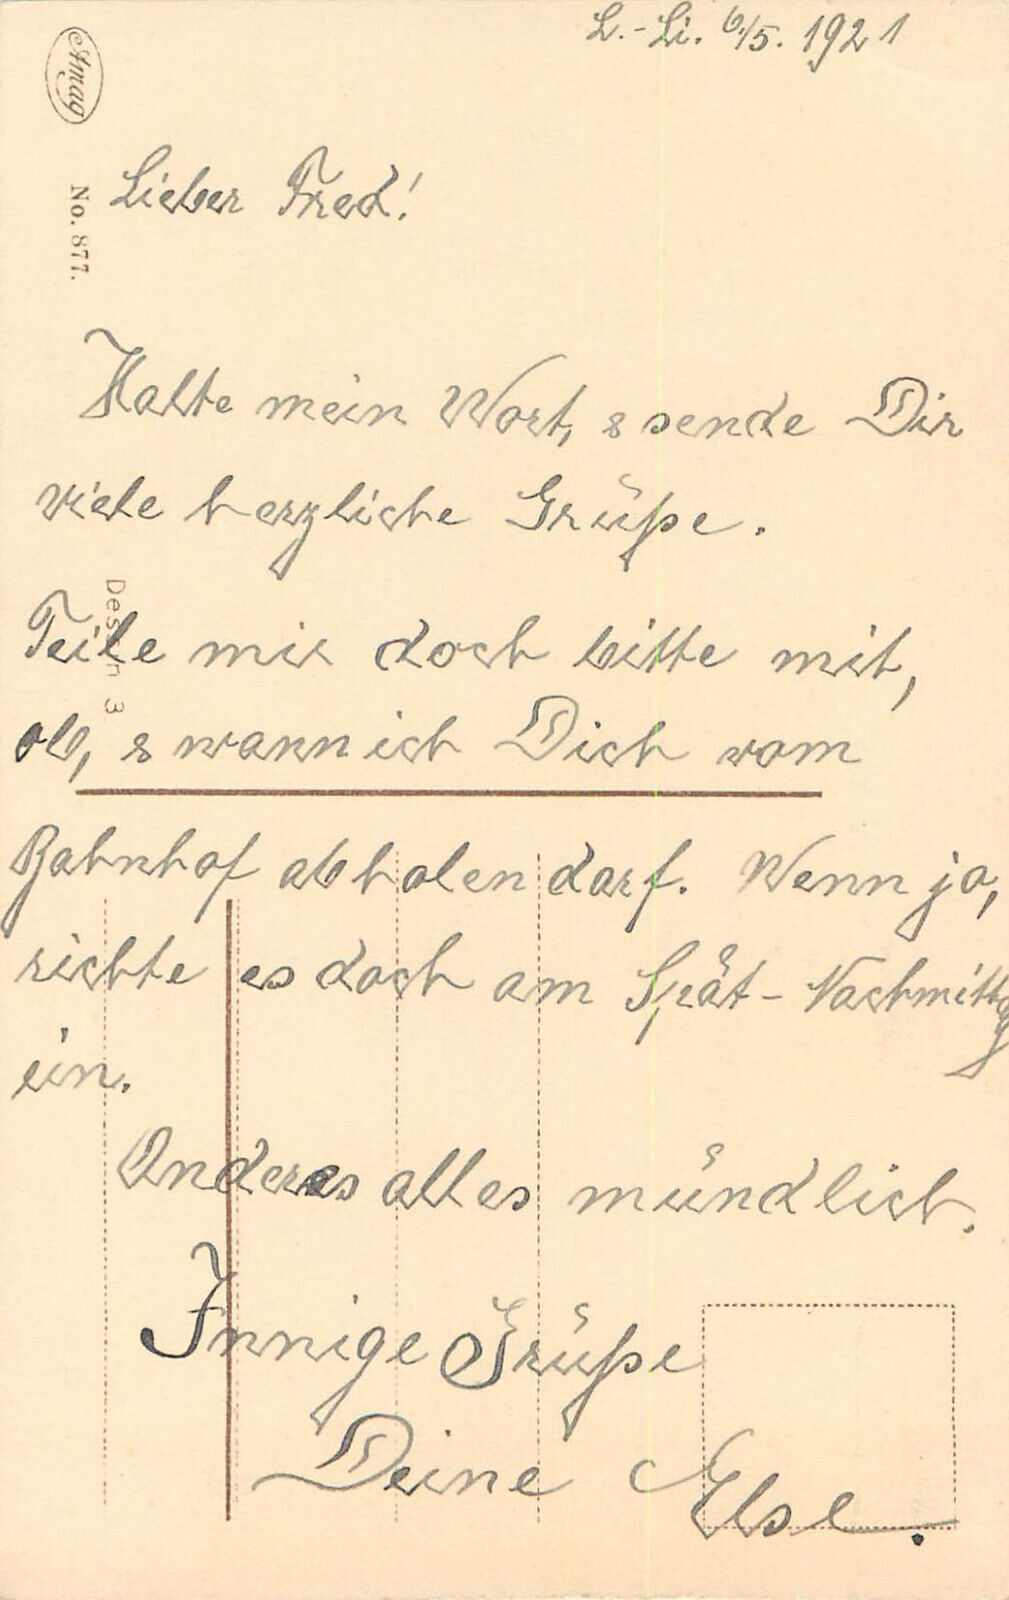 L.-Li. 6./5. 1921
Amag
No. 877.
Lieber Fred!
Halte mein Wort, & sende Dir
viele herzliche Grüße.
Dessin 3
Teile mir doch bitte mit,
ob, & wann ich Dich vom
Bahnhof abholen darf. Wenn ja,
richte es doch am Spät-Nachmittg
ein.
Anderes alles mündlich.
Innige Grüße
Deine Else.